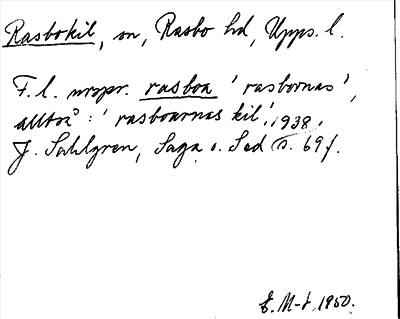 Rasbokil, on, Rasbo hd, Upps. l.
F. l. urspr. rasboa 'rasbornas',
alltså: 'rasboarnas kil'. 1938.
J. Sahlgren, Saga o. Sed s. 69f.
E. M-t 1950.